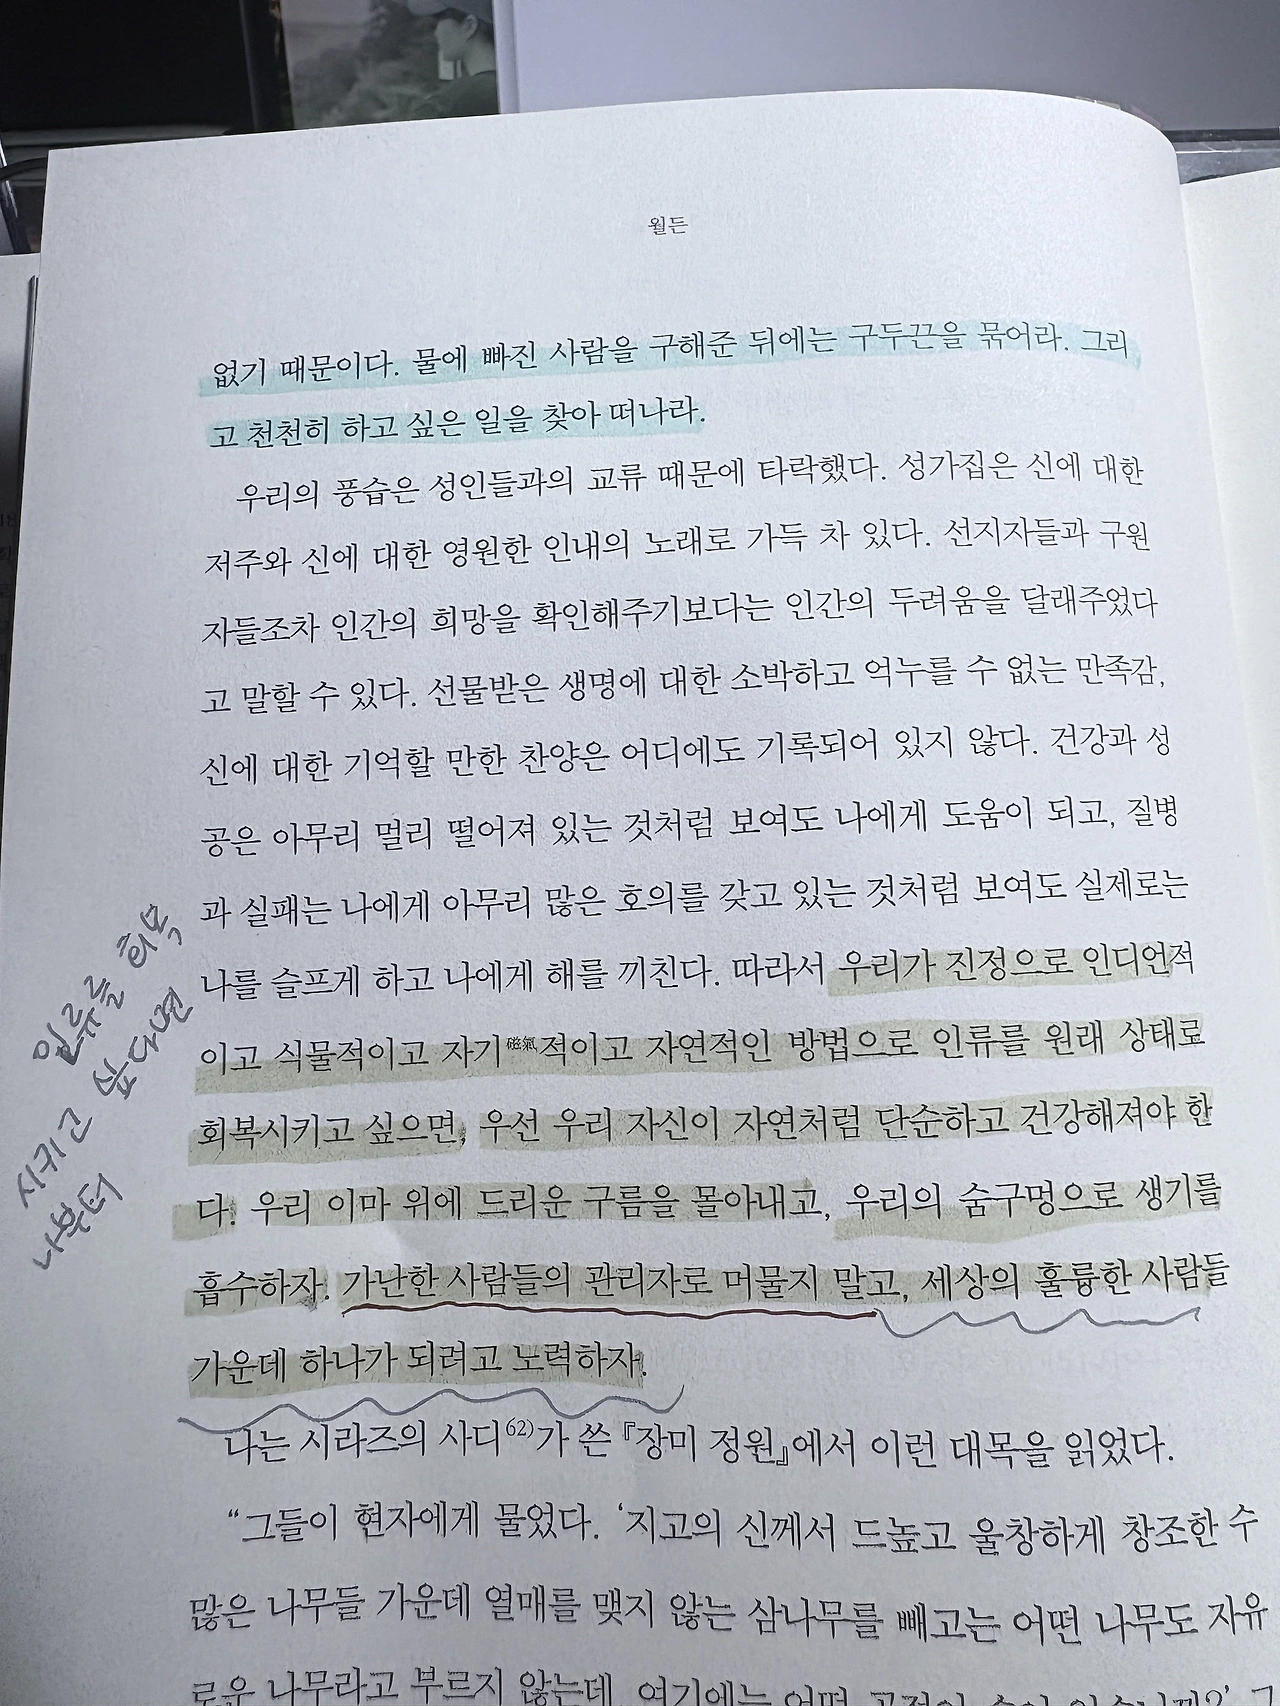 월든
없기 때문이다. 물에 빠진 사람을 구해준 뒤에는 구두끈을 묶어라. 그리
고 천천히 하고 싶은 일을 찾아 떠나라.
우리의 풍습은 성인들과의 교류 때문에 타락했다. 성가집은 신에 대한
저주와 신에 대한 영원한 인내의 노래로 가득 차 있다. 선지자들과 구원
자들조차 인간의 희망을 확인해주기보다는 인간의 두려움을 달래주었다
고 말할 수 있다. 선물받은 생명에 대한 소박하고 억누를 수 없는 만족감,
신에 대한 기억할 만한 찬양은 어디에도 기록되어 있지 않다. 건강과 성
공은 아무리 멀리 떨어져 있는 것처럼 보여도 나에게 도움이 되고, 질병
과 실패는 나에게 아무리 많은 호의를 갖고 있는 것처럼 보여도 실제로는
나를 슬프게 하고 나에게 해를 끼친다. 따라서 우리가 진정으로 인디언적
이고 식물적이고 자기磁氣적이고 자연적인 방법으로 인류를 원래 상태로
회복시키고 싶으면, 우선 우리 자신이 자연처럼 단순하고 건강해져야 한
다. 우리 이마 위에 드리운 구름을 몰아내고, 우리의 숨구멍으로 생기를
흡수하자. 가난한 사람들의 관리자로 머물지 말고, 세상의 훌륭한 사람들
가운데 하나가 되려고 노력하자.
나는 시라즈의 사디62)가 쓴 『장미 정원』에서 이런 대목을 읽었다.
“그들이 현자에게 물었다. ‘지고의 신께서 드높고 울창하게 창조한 수
많은 나무들 가운데 열매를 맺지 않는 삼나무를 빼고는 어떤 나무도 자유
로운 나무라고 부르지 않는데, 여기에는 어떤
인류를 회복
시키고 싶다면
나부터